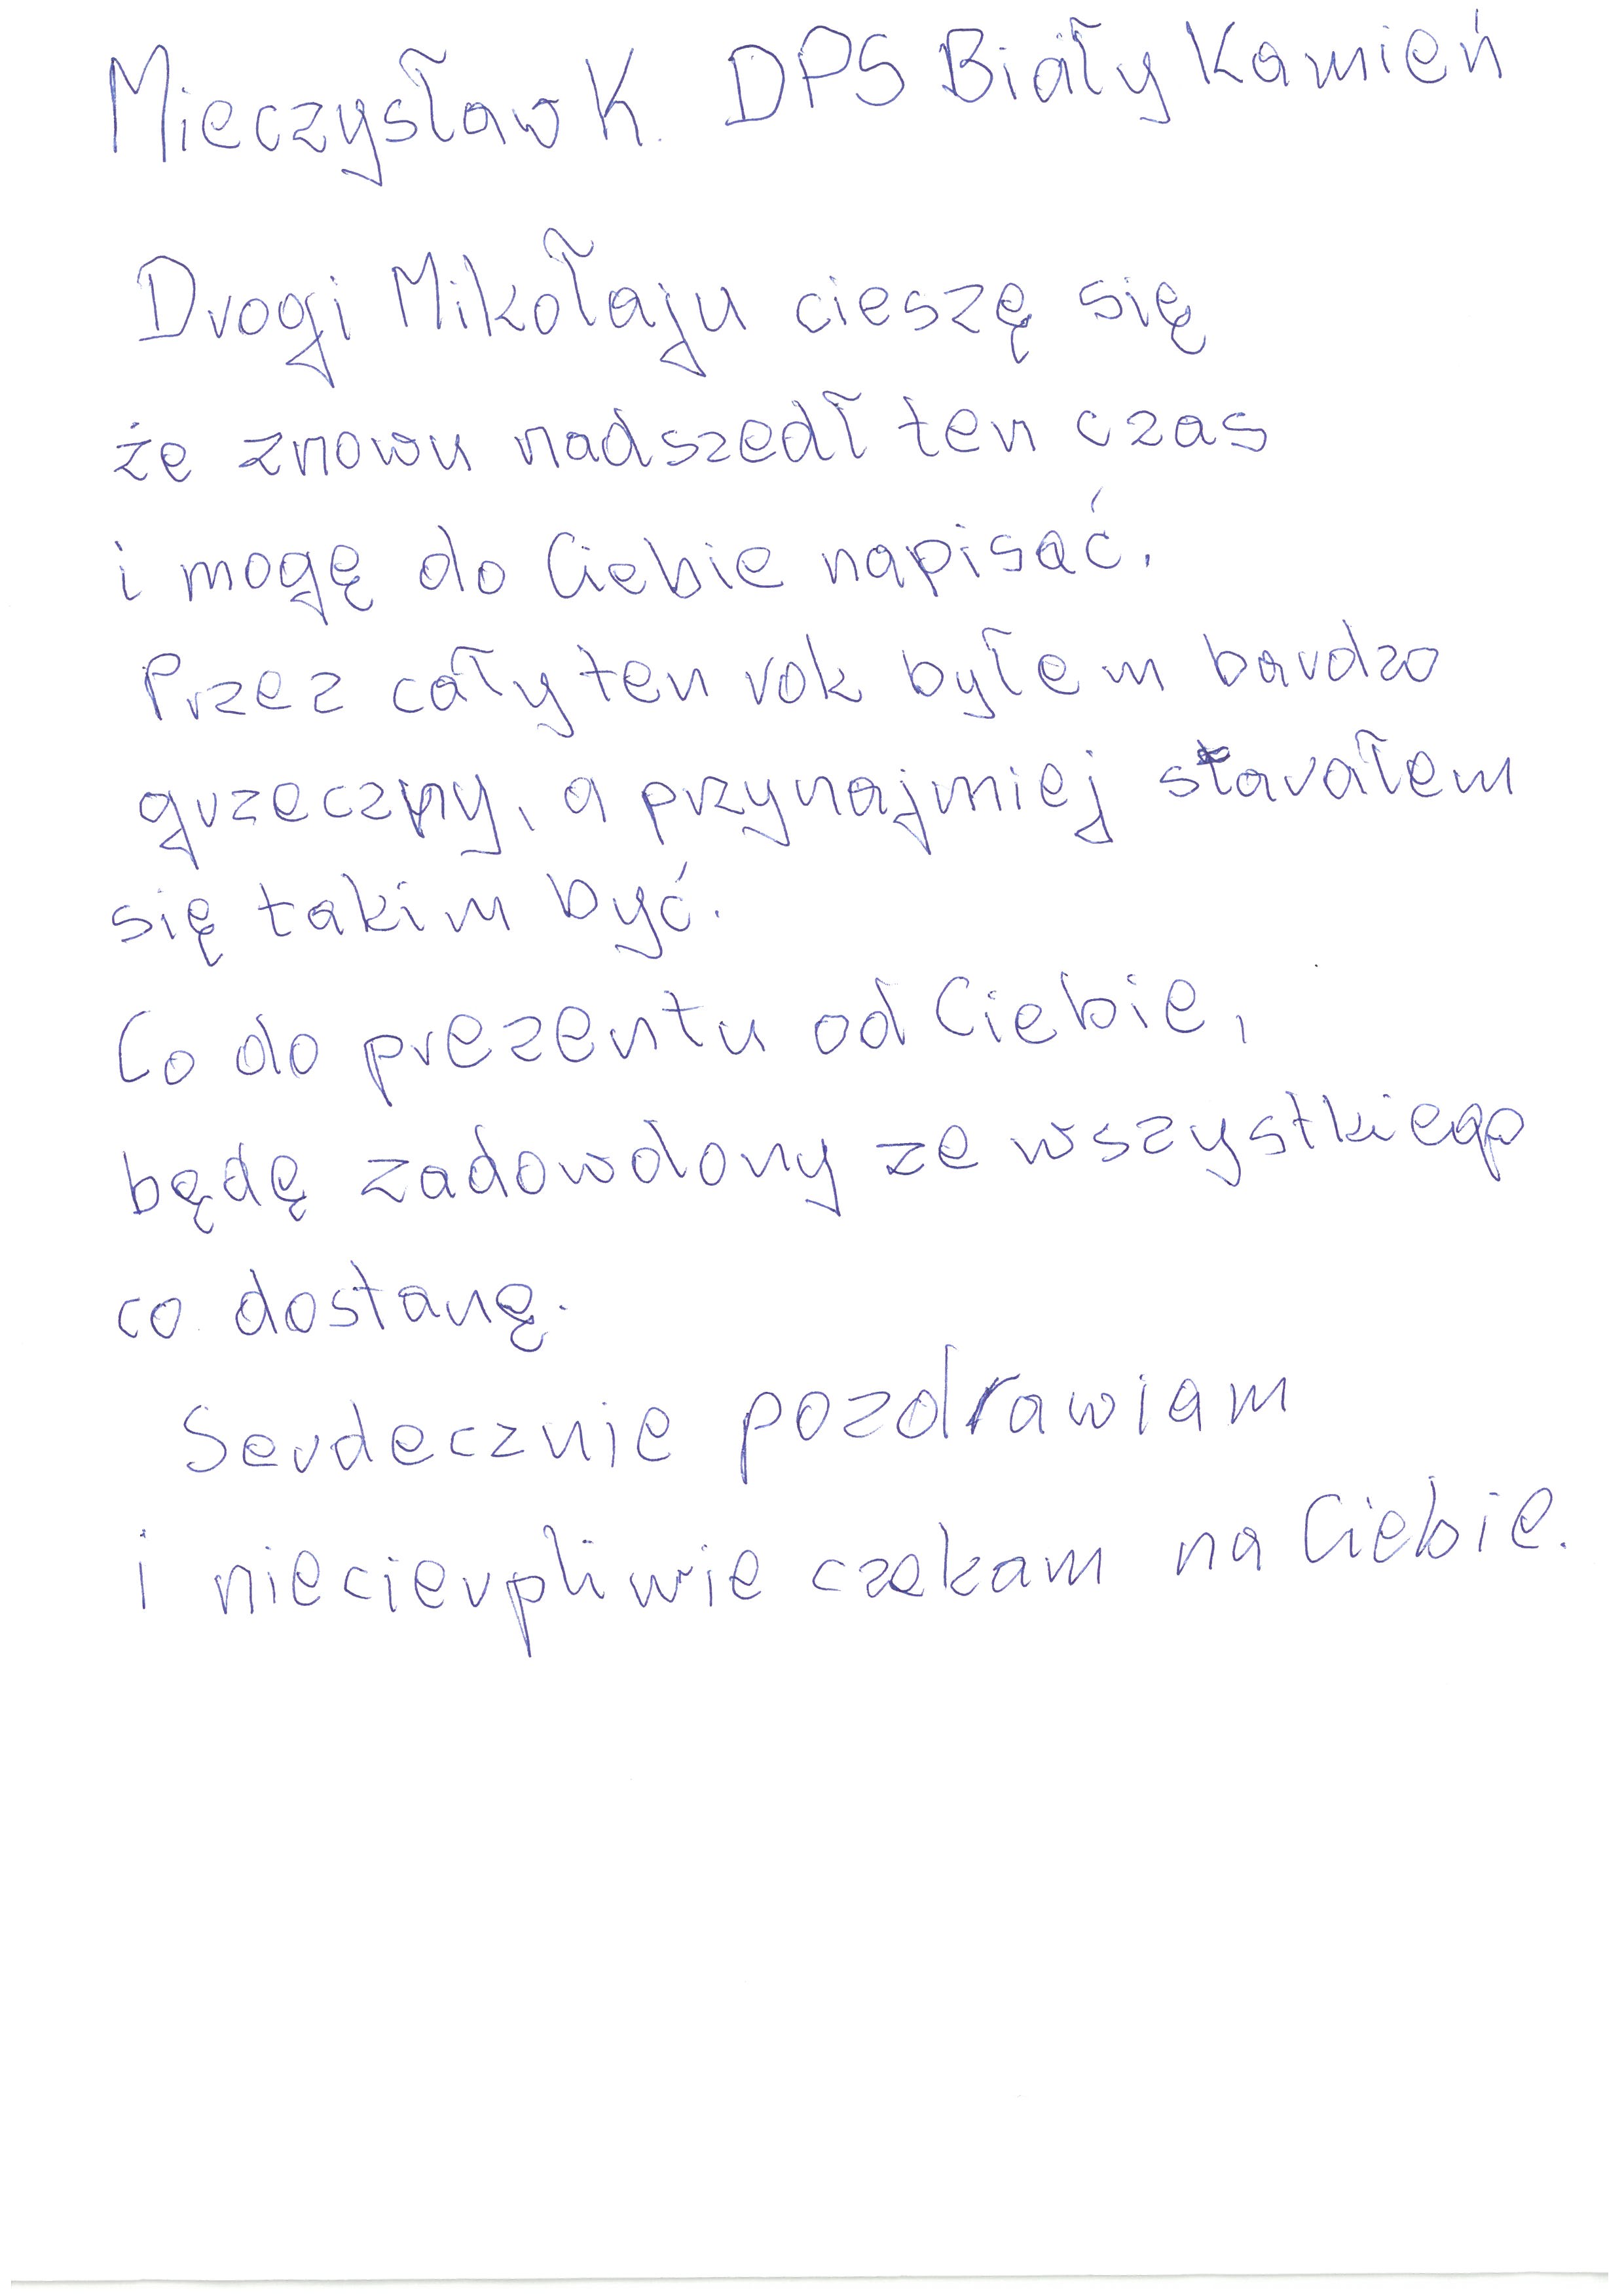 Mieczysław K. DPS Biały Kamień
Drogi Mikołaju cieszę się
że znowu nadszedł ten czas
i mogę do Ciebie napisać.
Przez cały ten rok byłem bardzo
grzeczny, a przynajmniej starałem
się takim być.
Co do prezentu od Ciebie,
będę zadowdony ze wszystkiego
co dostanę.
Serdecznie pozdrawiam
i niecierpliwie czekam na Ciebie.